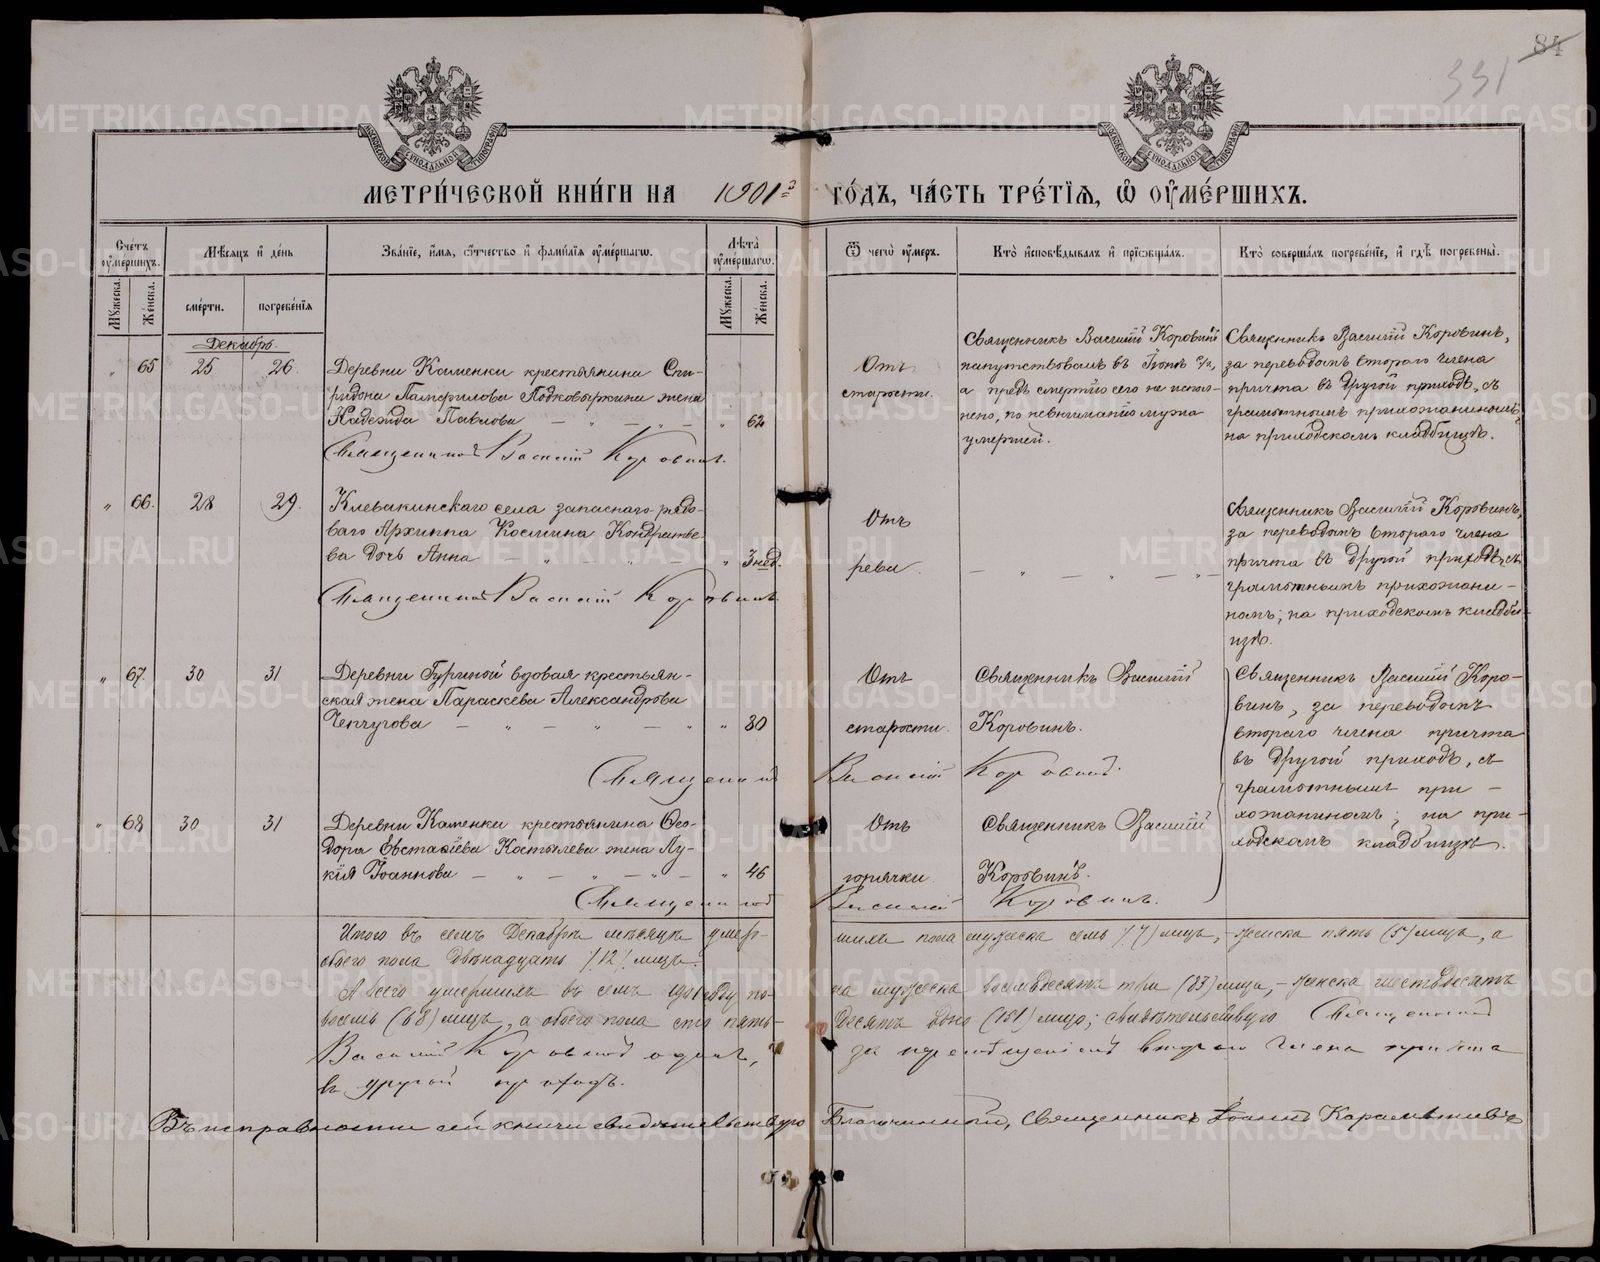 84
331
МЕТРИ́ЧЕСКОЙ КНИ́ГИ НА 1901й ГО́ДЪ, ЧА́СТЬ ТРЕ́ТІЯ, Ѡ ОУМЕ́РШИХЪ.
Счетъ оумершихъ.
Мѣсяцъ и день
Званіе, имя, отчество и фамилія оумершагѡ.
Лѣта оумершагѡ.
Ѿ чегѡ оумеръ.
Кто исповѣдывалъ и пріѡбщалъ.
Кто совершалъ погребеніе, и гдѣ погребены.
Мужеска.
Женска.
смерти.
погребенія
Мужеска.
Женска.
Декабрь.
" 65 25 26.
Деревни Каменки крестьянина Спи-
ридона Памфилова Подковыркина жена
Надежда Павлова — " — " — " 62
Священникъ Василій Коровинъ.
Отъ
старости.
Священникъ Василій Коровинъ
напутствовалъ въ Іюнѣ с/г,
а предъ смертію сего не испол-
нено, по невниманію мужа
умершей.
Священникъ Василій Коровинъ,
за переводомъ втораго члена
причта въ другой приходъ, съ
грамотнымъ прихожаниномъ;
на приходскомъ кладбищѣ.
" 66. 28 29.
Клевакинскаго села запаснаго рядо-
ваго Архиппа Космина Кондратье-
ва дочь Анна — " — " — " 3 нед.
Священникъ Василій Коровинъ
Отъ
рева.
— " — " — " —
Священникъ Василій Коровинъ,
за переводомъ втораго члена
причта въ другой приходъ, съ
грамотнымъ прихожани-
номъ; на приходскомъ кладби-
щѣ.
" 67. 30 31
Деревни Гуриной вдовая крестьян-
ская жена Параскева Александрова
Чепчугова — " — " — " " 80
Священникъ Василій Коровинъ.
Отъ
старости.
Священникъ Василій
Коровинъ.
Священникъ Василій Коро-
винъ, за переводомъ
втораго члена причта
въ другой приходъ, съ
грамотнымъ при-
хожаниномъ; на при-
ходскомъ кладбищѣ.
" 68 30 31
Деревни Каменки крестьянина Ѳео-
дора Евстафіева Костылева жена Лу-
кія Іоаннова — " — " — " — " 46
Священникъ Василій Коровинъ.
Отъ
горячки.
Священникъ Василій
Коровинъ.
Итого въ семъ Декабрѣ мѣсяцѣ умер-
шихъ пола мужеска семь (7) лицъ, - женска пять (5) лицъ, а
обоего пола двѣнадцать (12) лицъ.
А всего умершихъ въ семъ 1901 году по-
ла мужеска восемьдесятъ три (83) лица, - женска шестьдесятъ
восемь (68) лицъ, а обоего пола сто пять-
десятъ одно (151) лицо; свидѣтельствую Священникъ
Василій Коровинъ одинъ,
за перемѣщеніемъ втораго члена причта
въ другой приходъ.
Въ исправности сей книги свидѣтельствую Благочинный, Священникъ Іоаннъ
METRIKI.GASO-URAL.RU